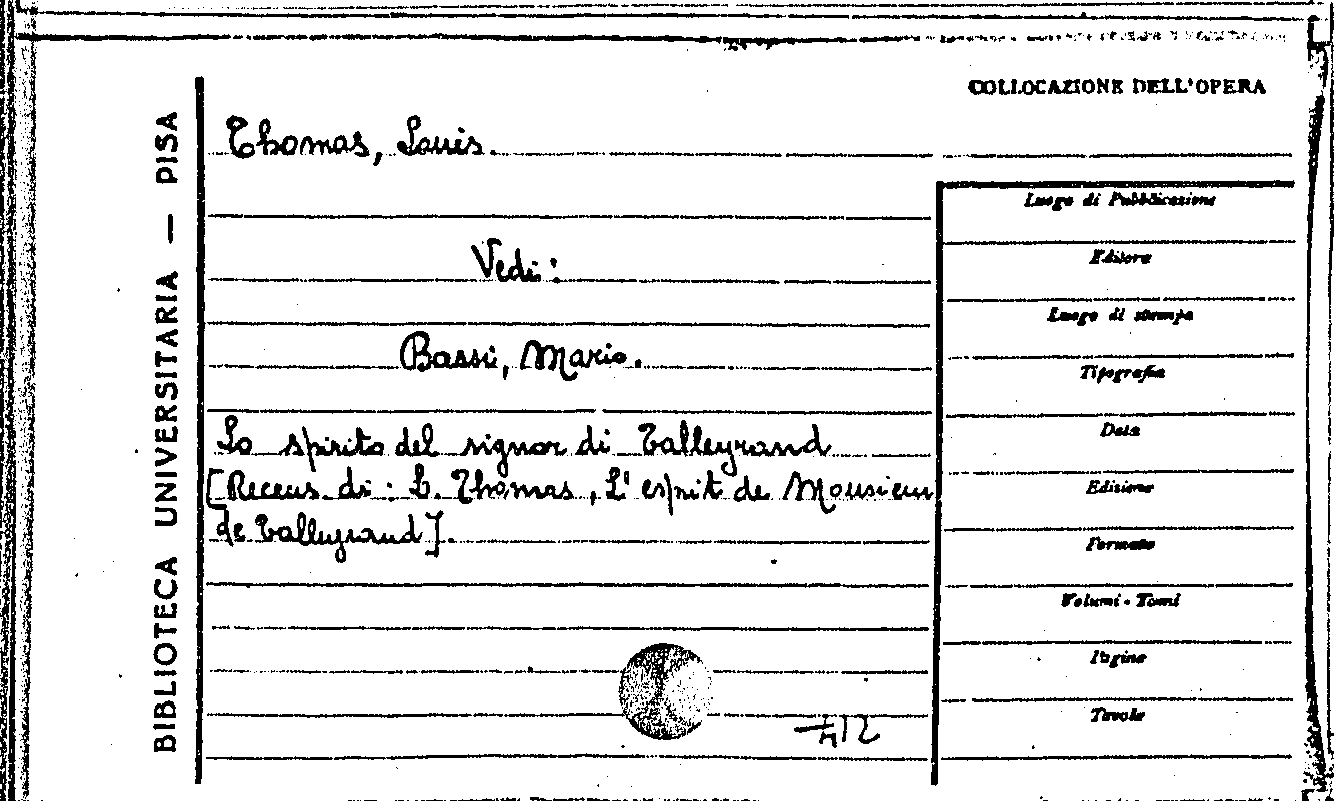 COLLOCAZIONE DELL'OPERA
BIBLIOTECA UNIVERSITARIA — PISA
Thomas, Louis.
Vedi:
Bassi, Mario.
Lo spirito del signor di Talleyrand
[Recens. di: L. Thomas, L'esprit de Monsieur
de Talleyrand].
Luogo di Pubblicazione
Editore
Luogo di stampa
Tipografia
Data
Edizione
Formato
Volumi - Tomi
Pagine
Tavole